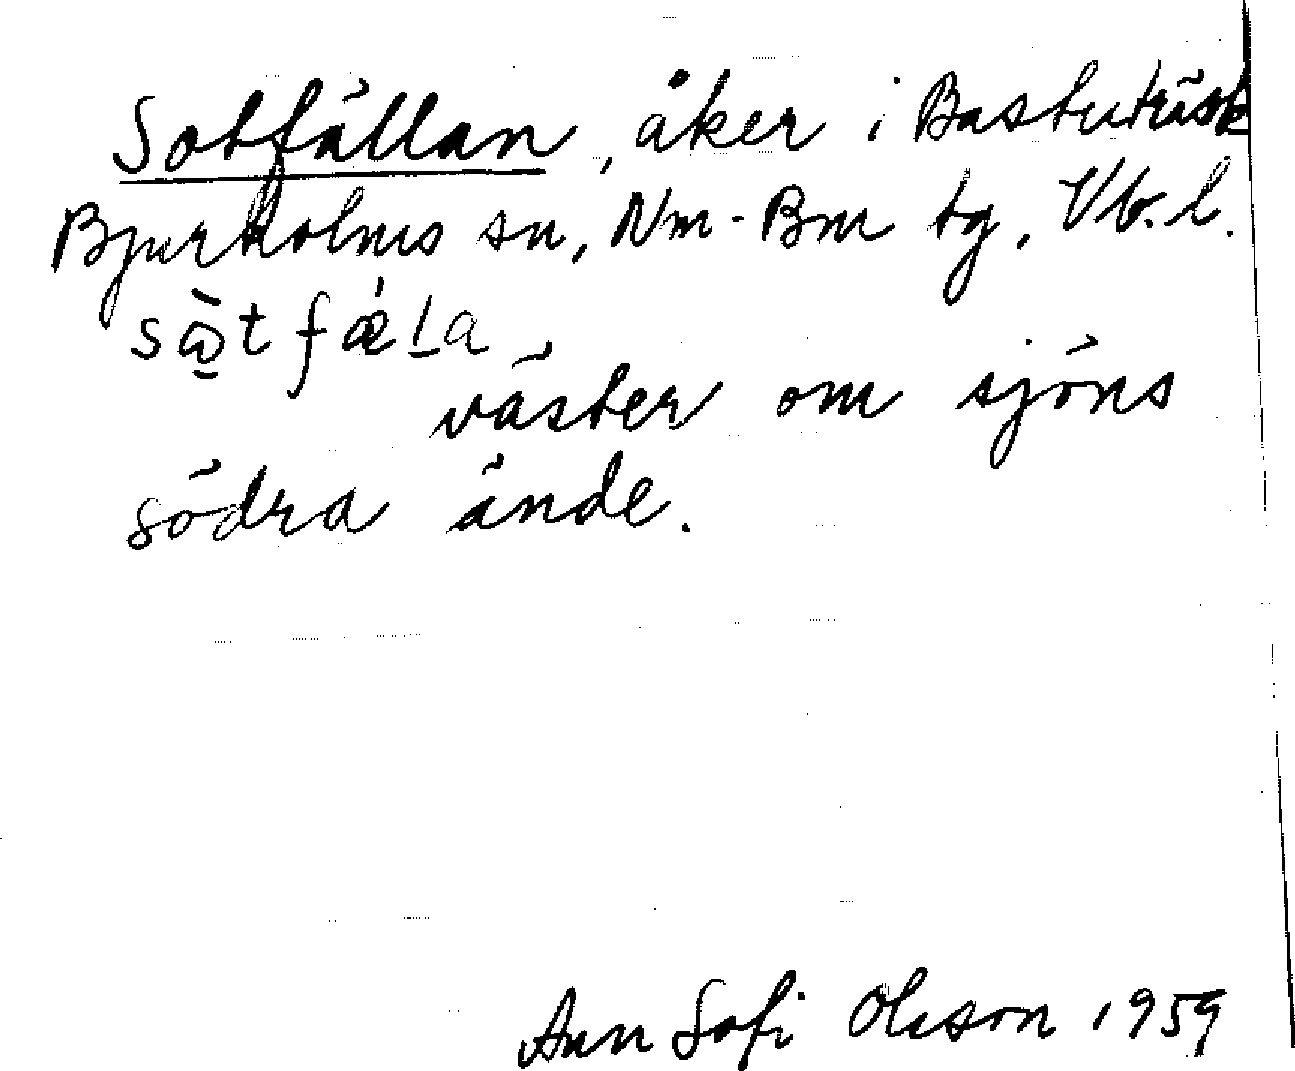 Sotfällan, åker i Bastuträsk
Bjurholms sn, Nm-Bm tg, Vb. l.
väster om sjöns
södra ände.
Ann Sofi Olsson 1959